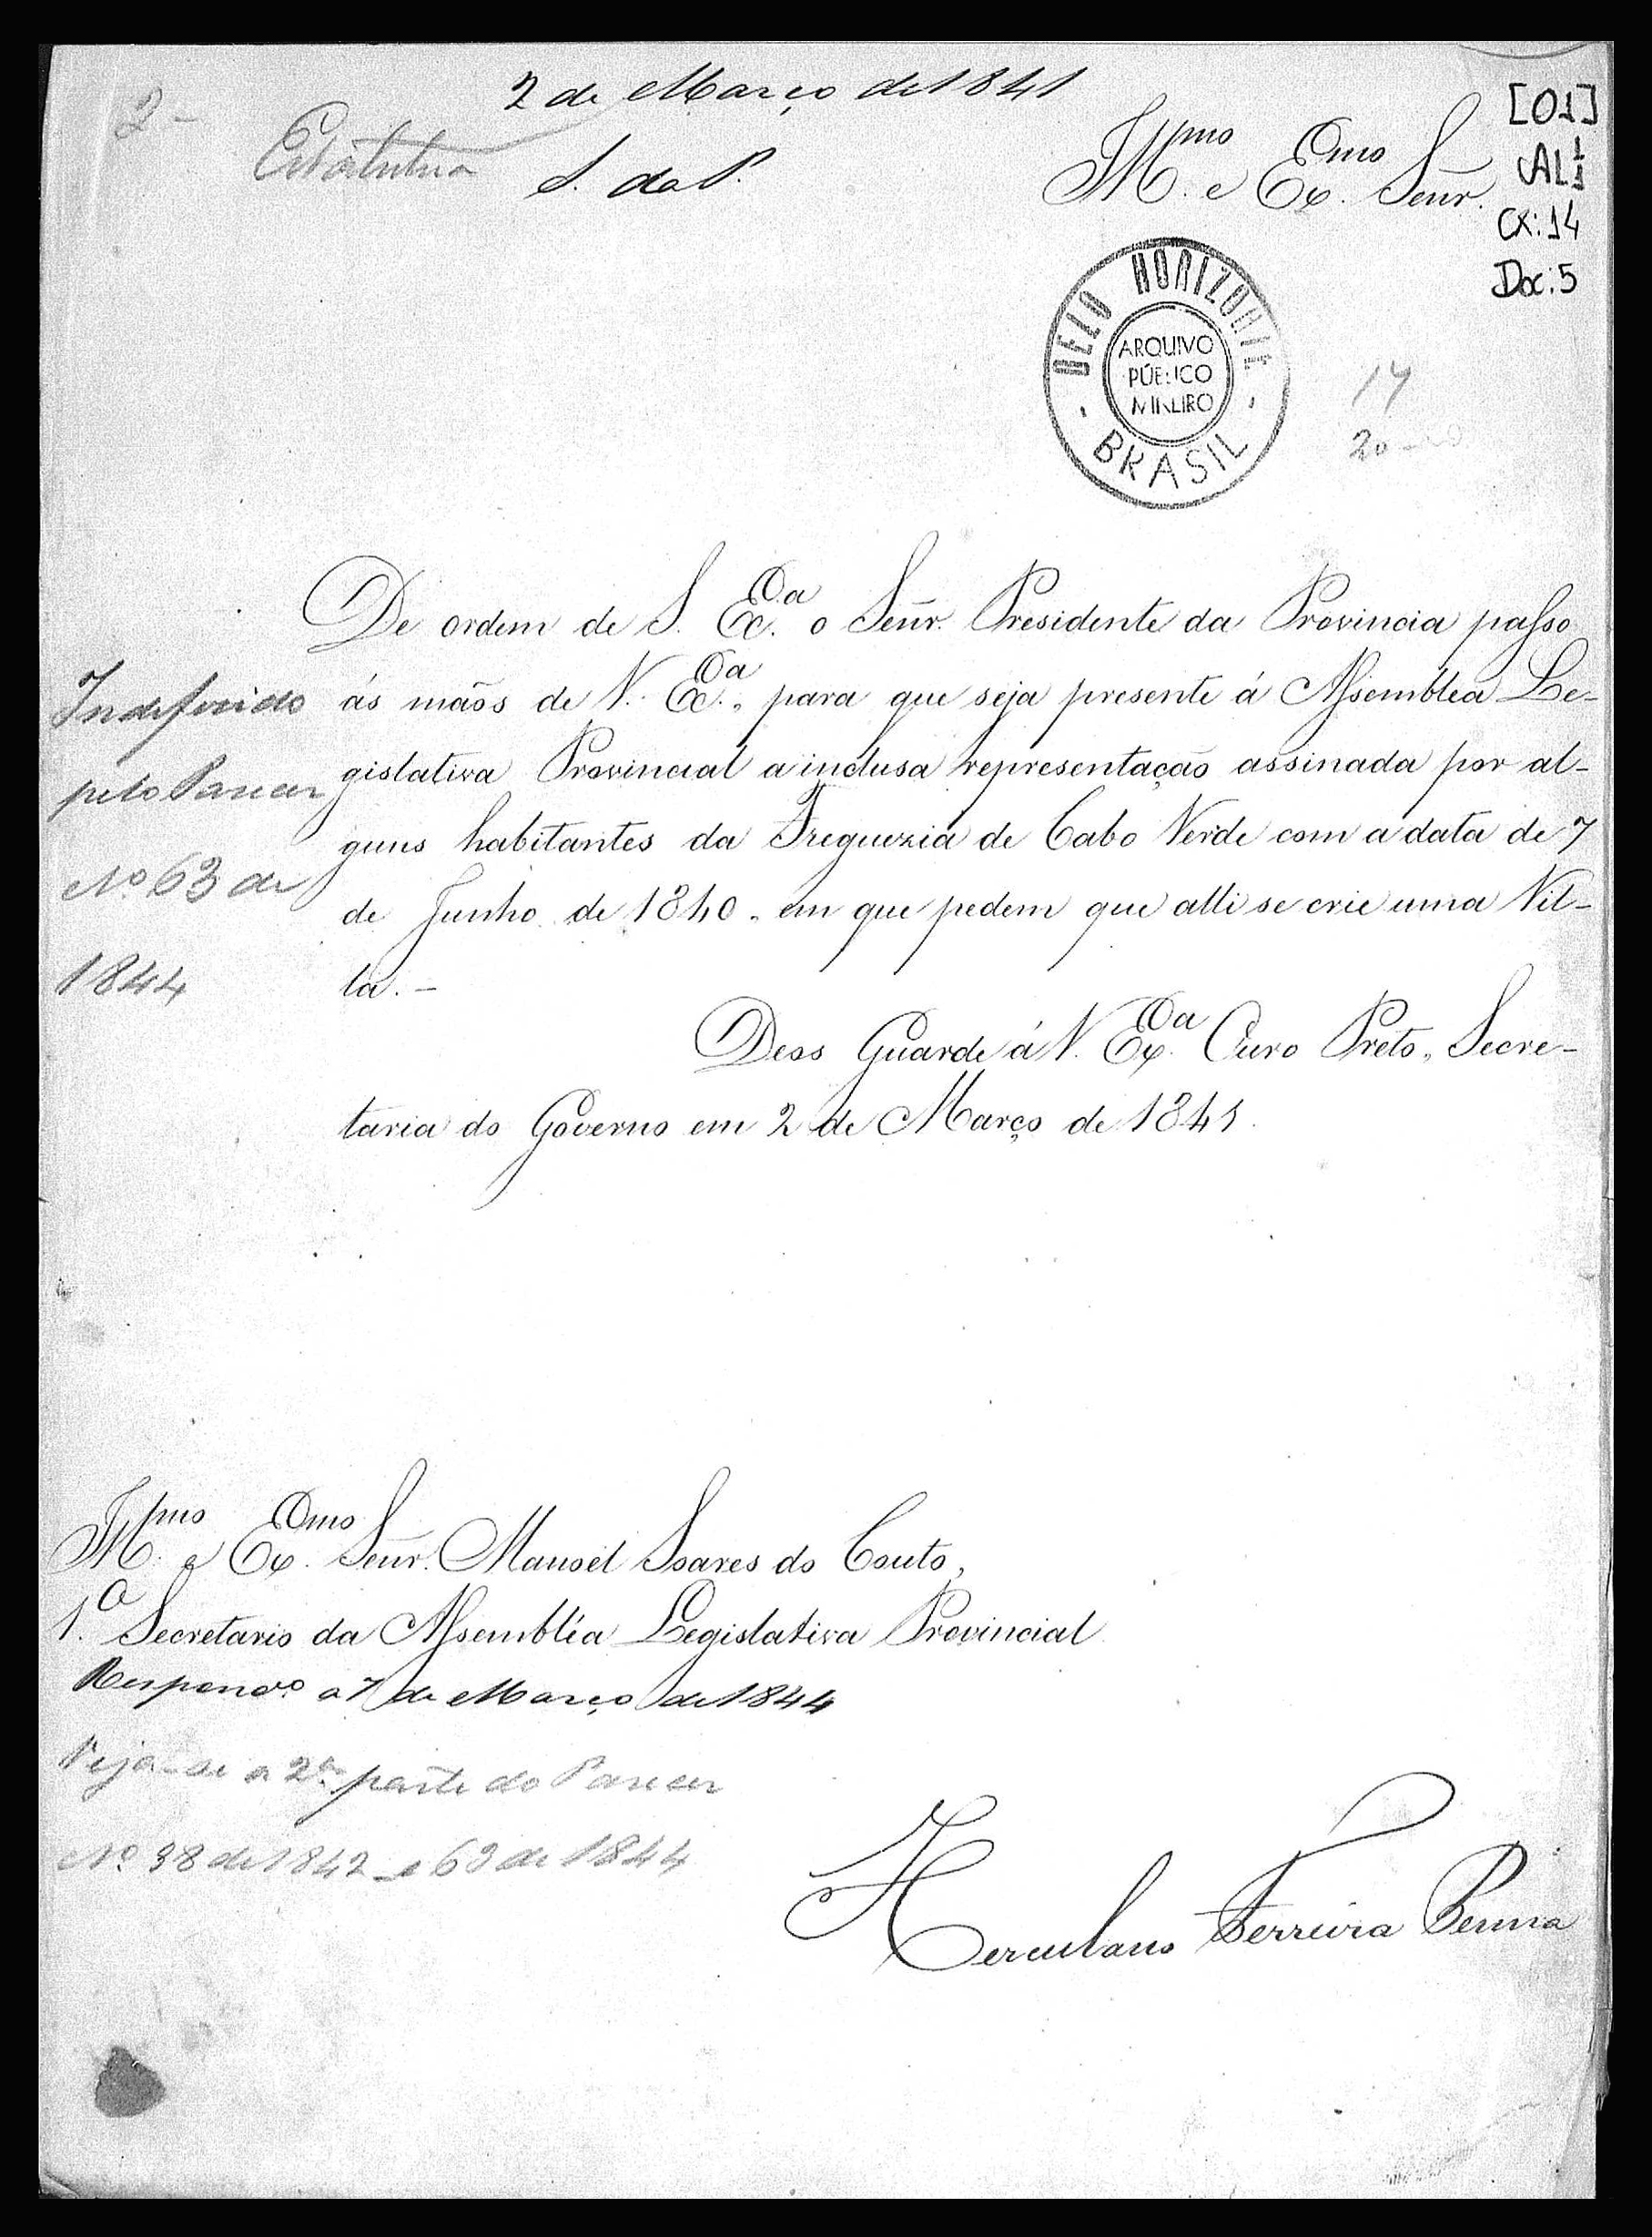 2 de Março de 1841
2-
Estatistica
S. da P.
Ill.mo e Ex.mo Senr.
[01]
AL 1/1
CX: 14
Doc: 5
BELO HORIZONTE
ARQUIVO
PÚBLICO
MINEIRO
BRASIL
14
20
De ordem de S. Ex.a o Senr. Presidente da Provincia passo
ás mãos de V. Ex.a, para que seja presente á Assemblea Le-
gislativa Provincial a inclusa representação assinada por al-
guns habitantes da Freguezia de Cabo Verde com a data de 7
de Junho de 1840, em que pedem que alli se crie uma Vil-
la. -
Indeferido
pelo Parecer
No 63 de
1844
Deos Guarde á V. Ex.a Ouro Preto, Secre-
taria do Governo em 2 de Março de 1841.
Ill.mo e Ex.mo Senr. Manoel Soares do Couto,
1.o Secretario da Assembléa Legislativa Provincial
Respond.o a 7 de Março de 1844
Veja-se a 2.a parte do Parecer
No 38 de 1842 e 63 de 1844
Herculano Ferreira Penna